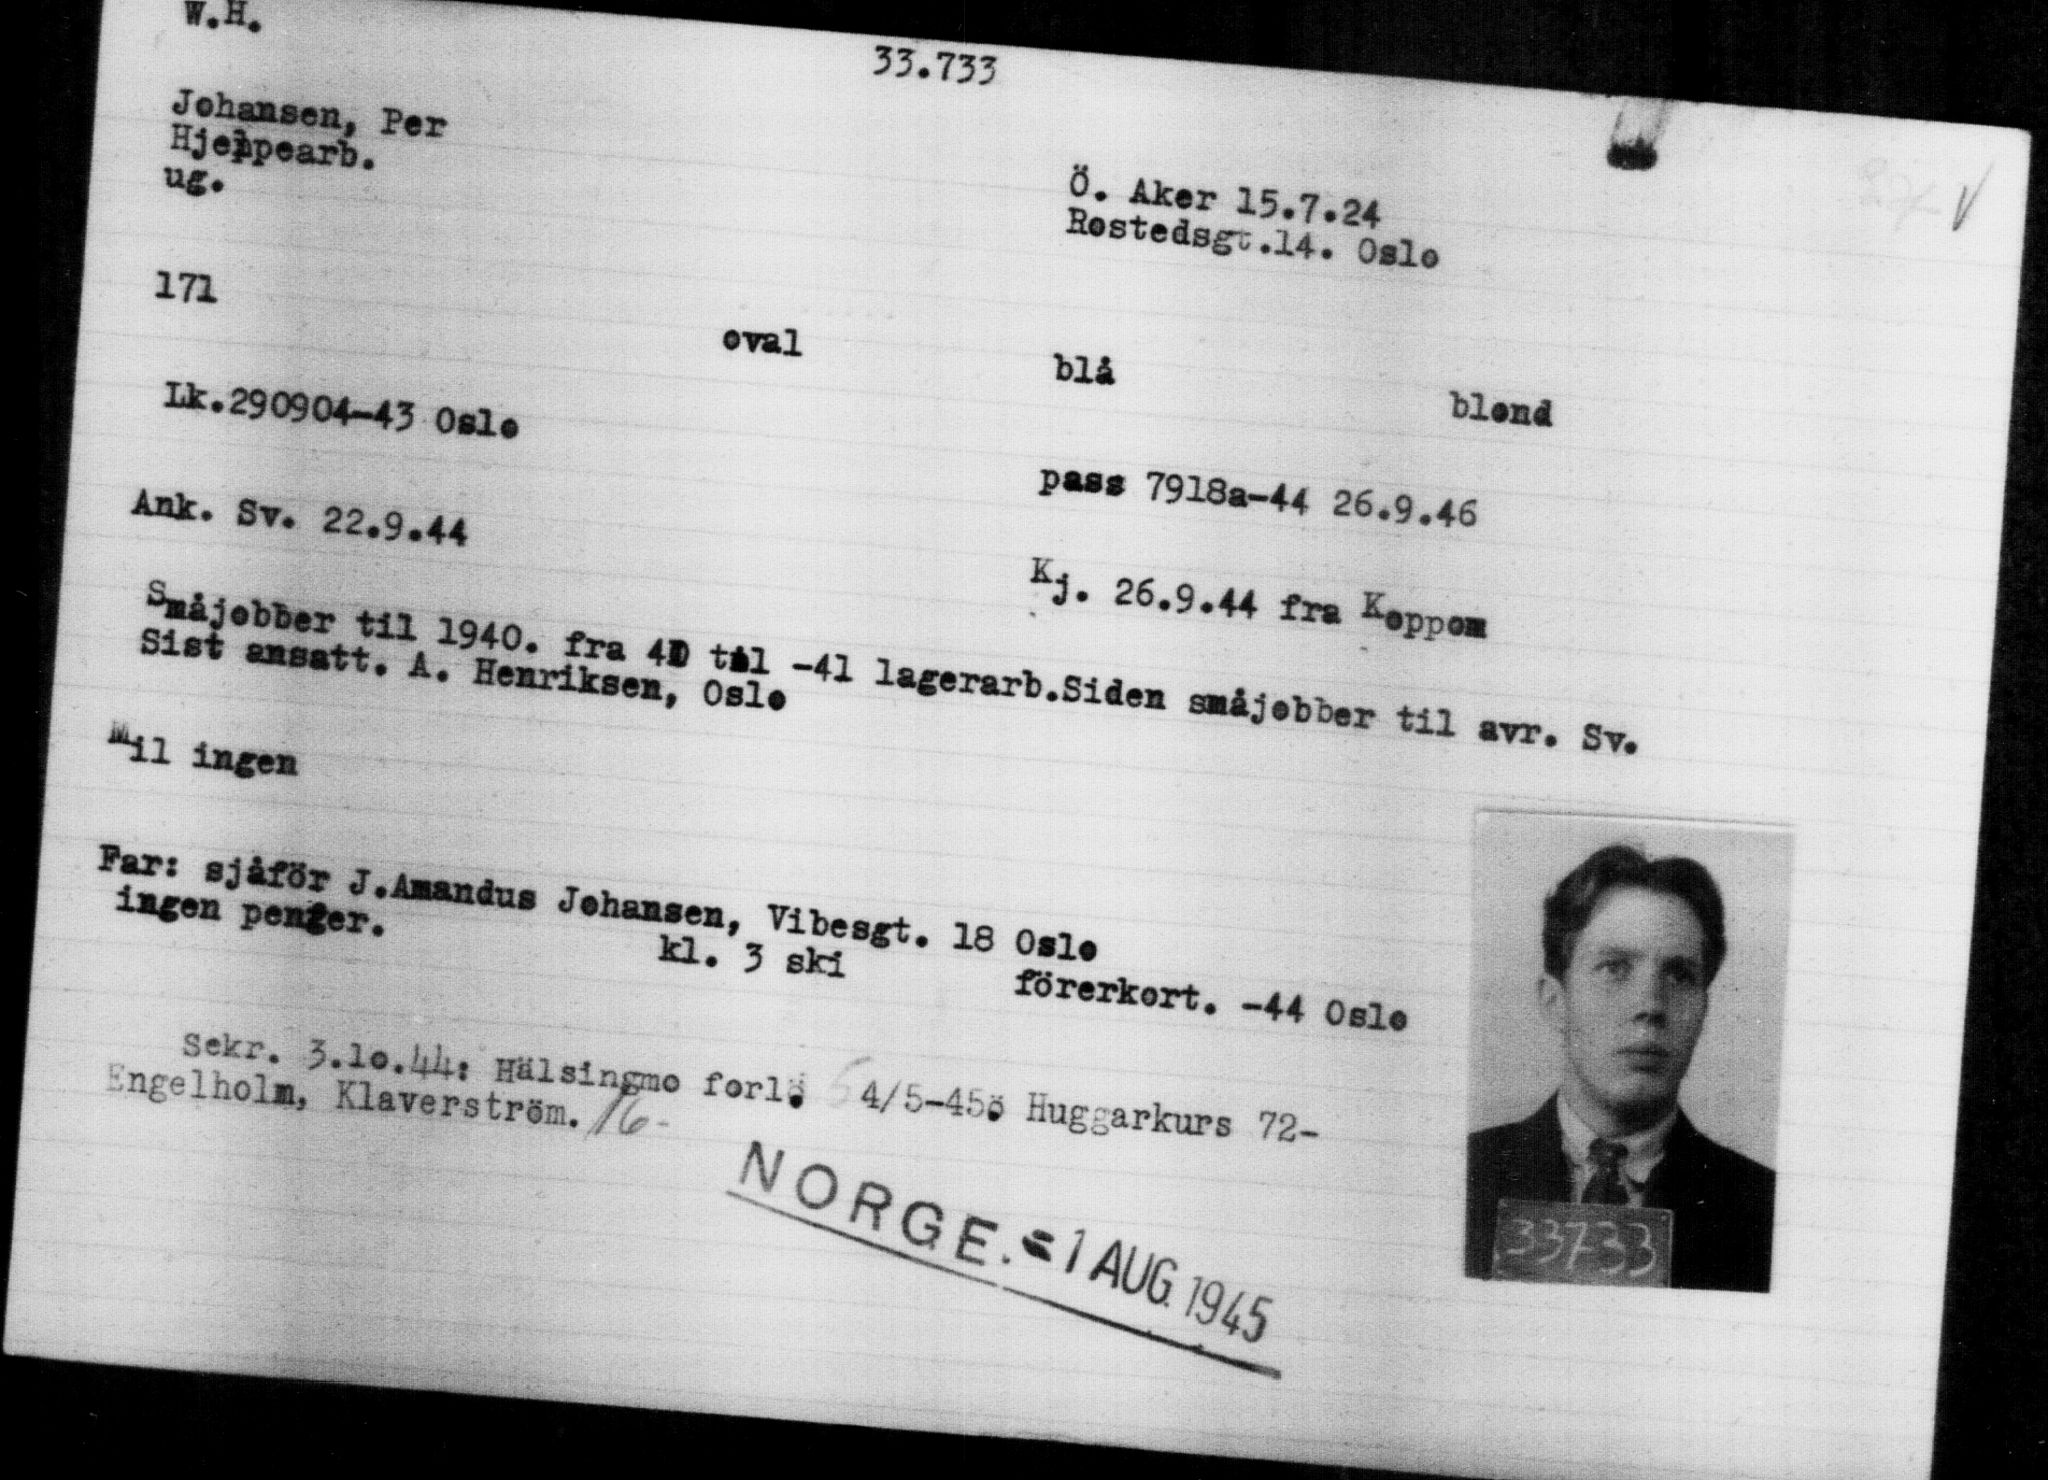 W.H.
33.733
Johansen, Per
Hjelpearb.
ug.
Ö. Aker 15.7.24
Rostedsgt.14. Oslo
171
oval
blå
blond
Lk.290904-43 Oslo
pass 7918a-44 26.9.46
Ank. Sv. 22.9.44
Kj. 26.9.44 fra Koppom
Småjobber til 1940. fra 40 til -41 lagerarb.Siden småjobber til avr. Sv.
Sist ansatt. A. Henriksen, Oslo
Mil ingen
Far: sjåför J.Amandus Johansen, Vibesgt. 18 Oslo
ingen penger.
kl. 3 ski
förerkort. -44 Oslo
Sekr. 3.10.44: Hälsingmo forl. 4/5-45: Huggarkurs 72-
Engelholm, Klaverström. 16-
NORGE. - 1 AUG. 1945
33733